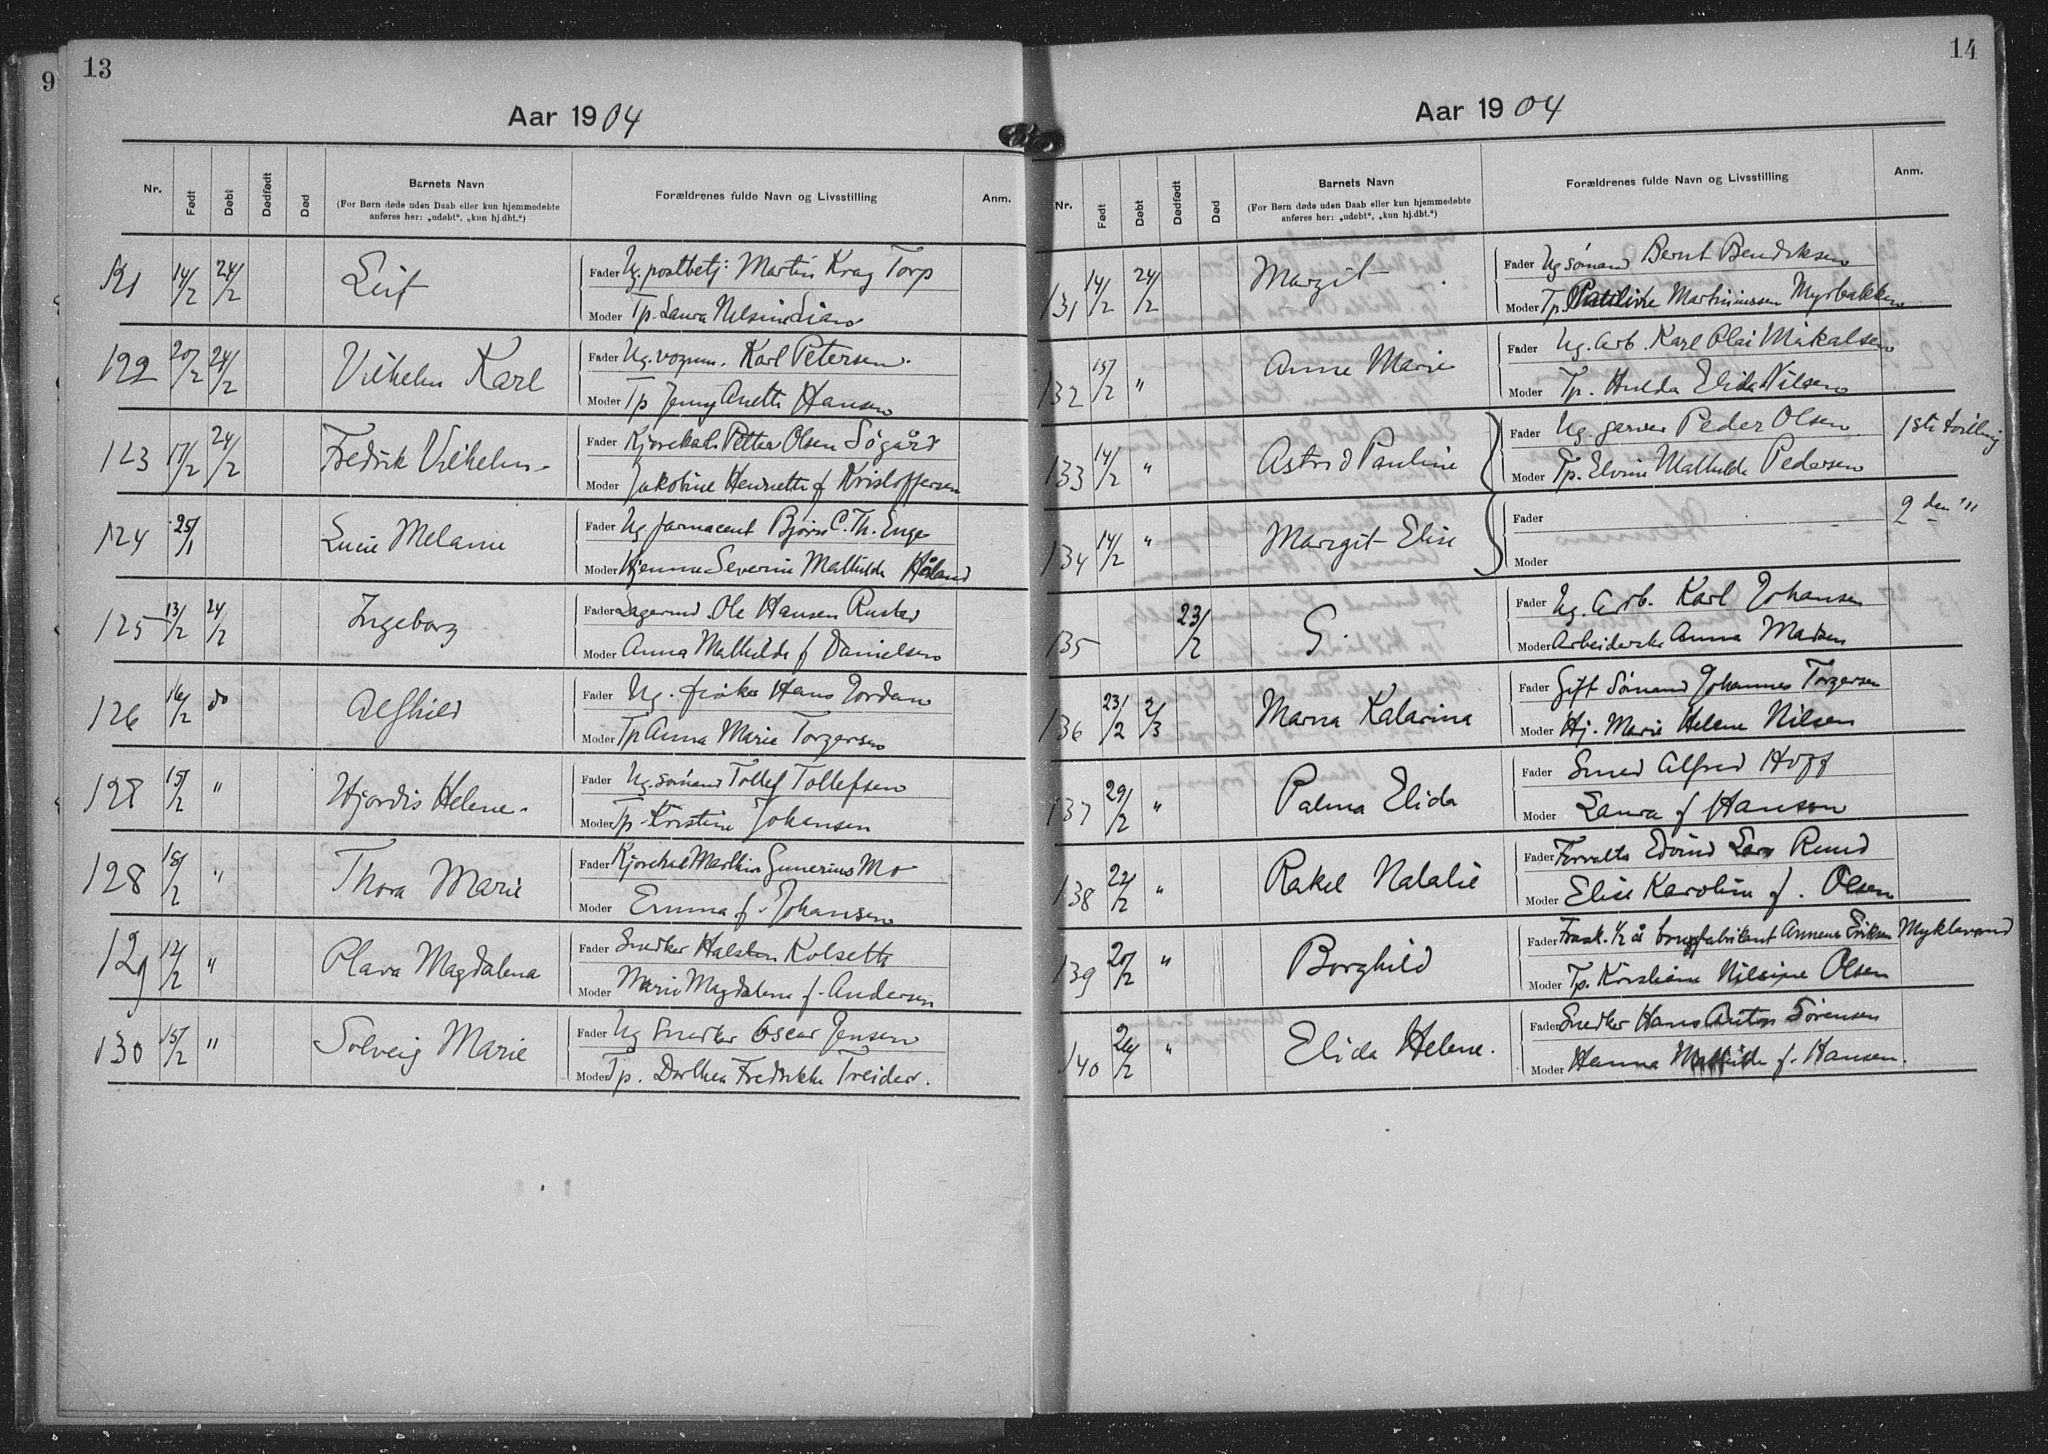 9
13
Aar 1904
Nr.
Født
Døbt
Dødfødt
Død
Barnets Navn
(For Børn døde uden Daab eller kun hjemmedøbte
anføres her: „udøbt“, „kun hj.dbt.“)
Forældrenes fulde Navn og Livsstilling
Anm.
14/2 24/2 Leif
Fader Ug. postbetj: Martin Krag Torp
Moder Tp. Laura Nelsine
122 20/2 24/2 Vilhelm Karl
Fader Ug. vognm. Karl Petersen.
Moder Tp Jenny Anette Hansen
123 17/2 24/2 Fredrik Vilhelm
Fader Kjørekal Petter Olsen Søgård
Moder Jakobine Henriette f Kristoffersen
124 25/1 Lucie Melanie
Fader Ug. farmacent Bjørn C. Th. Enge
Moder Hjemme Severine Mathilde Håland
125 13/2 24/2 Ingeborg
Fader Ole Hansen Rustad
Moder Anna Mathilde f Danielsen
126 16/2 do Alfhild
Fader Ug. fisker Hans Jordan
Moder Tp Anna Marie Torgersen
15/2 " Hjordis Helene.
Fader Ug sømand Tollef Tollefsen
Moder Tp. Kristine Johansen
128 18/2 " Thora Marie
Fader Kjørekal Marthin Gunerius Mo
Moder Emma f. Johansen
129 12/2 " Olava Magdalena
Fader Snedker Halsten Kolseth
Moder Marie Magdalene f. Andersen
130 15/2 " Solveig Marie
Fader Ug Snedker Oscar Jensen
Moder Tp. Dorthea Fredrikke Treider.
14
Aar 1904
Nr.
Født
Døbt
Dødfødt
Død
Barnets Navn
(For Børn døde uden Daab eller kun hjemmedøbte
anføres her: „udøbt“, „kun hj.dbt.“)
Forældrenes fulde Navn og Livsstilling
Anm.
131 14/2 24/2 Margit
Fader Ug sømand Bernt Bendiksen
Moder Tp. Martiniussen Myrbakken
132 15/2 " Anne Marie
Fader Ug. Arb. Karl Olai Mikalsen
Moder Tp. Hulda Elida Nilsen
133 14/2 " Astrid Pauline
Fader Ug. garver Peder Olsen 1ste tvilling
Moder Tp. Elvine Mathilde Pedersen
134 14/2 " Margit Elise
Fader 2den "
Moder
135 23/2 G.
Fader Ug. Arb. Karl Johansen
Moder Arbeiderske Anna Madsen
136 23/2 2/3 Marna Katarina
Fader Gift Sømand Johannes Torgersen
Moder Hj. Marie Helene Nilsen
137 29/2 " Palma Elida
Fader Smed Alfred Hoff
Moder Laura f Hanson
138 22/2 " Rakel Natalie
Fader Forvalter Edvind Lars Ruud
Moder Elise Karoline f. Olsen
139 20/2 " Borghild
Fader Frask. 1/2 år brugsfabrikant Anneus Eriksen Myklavand
Moder Tp. Kristiane Nilsine Olsen
140 24/2 " Elida Helene.
Fader Snedker Hans Anton Sørensen
Moder Hanna Mathilde f. Hansen.